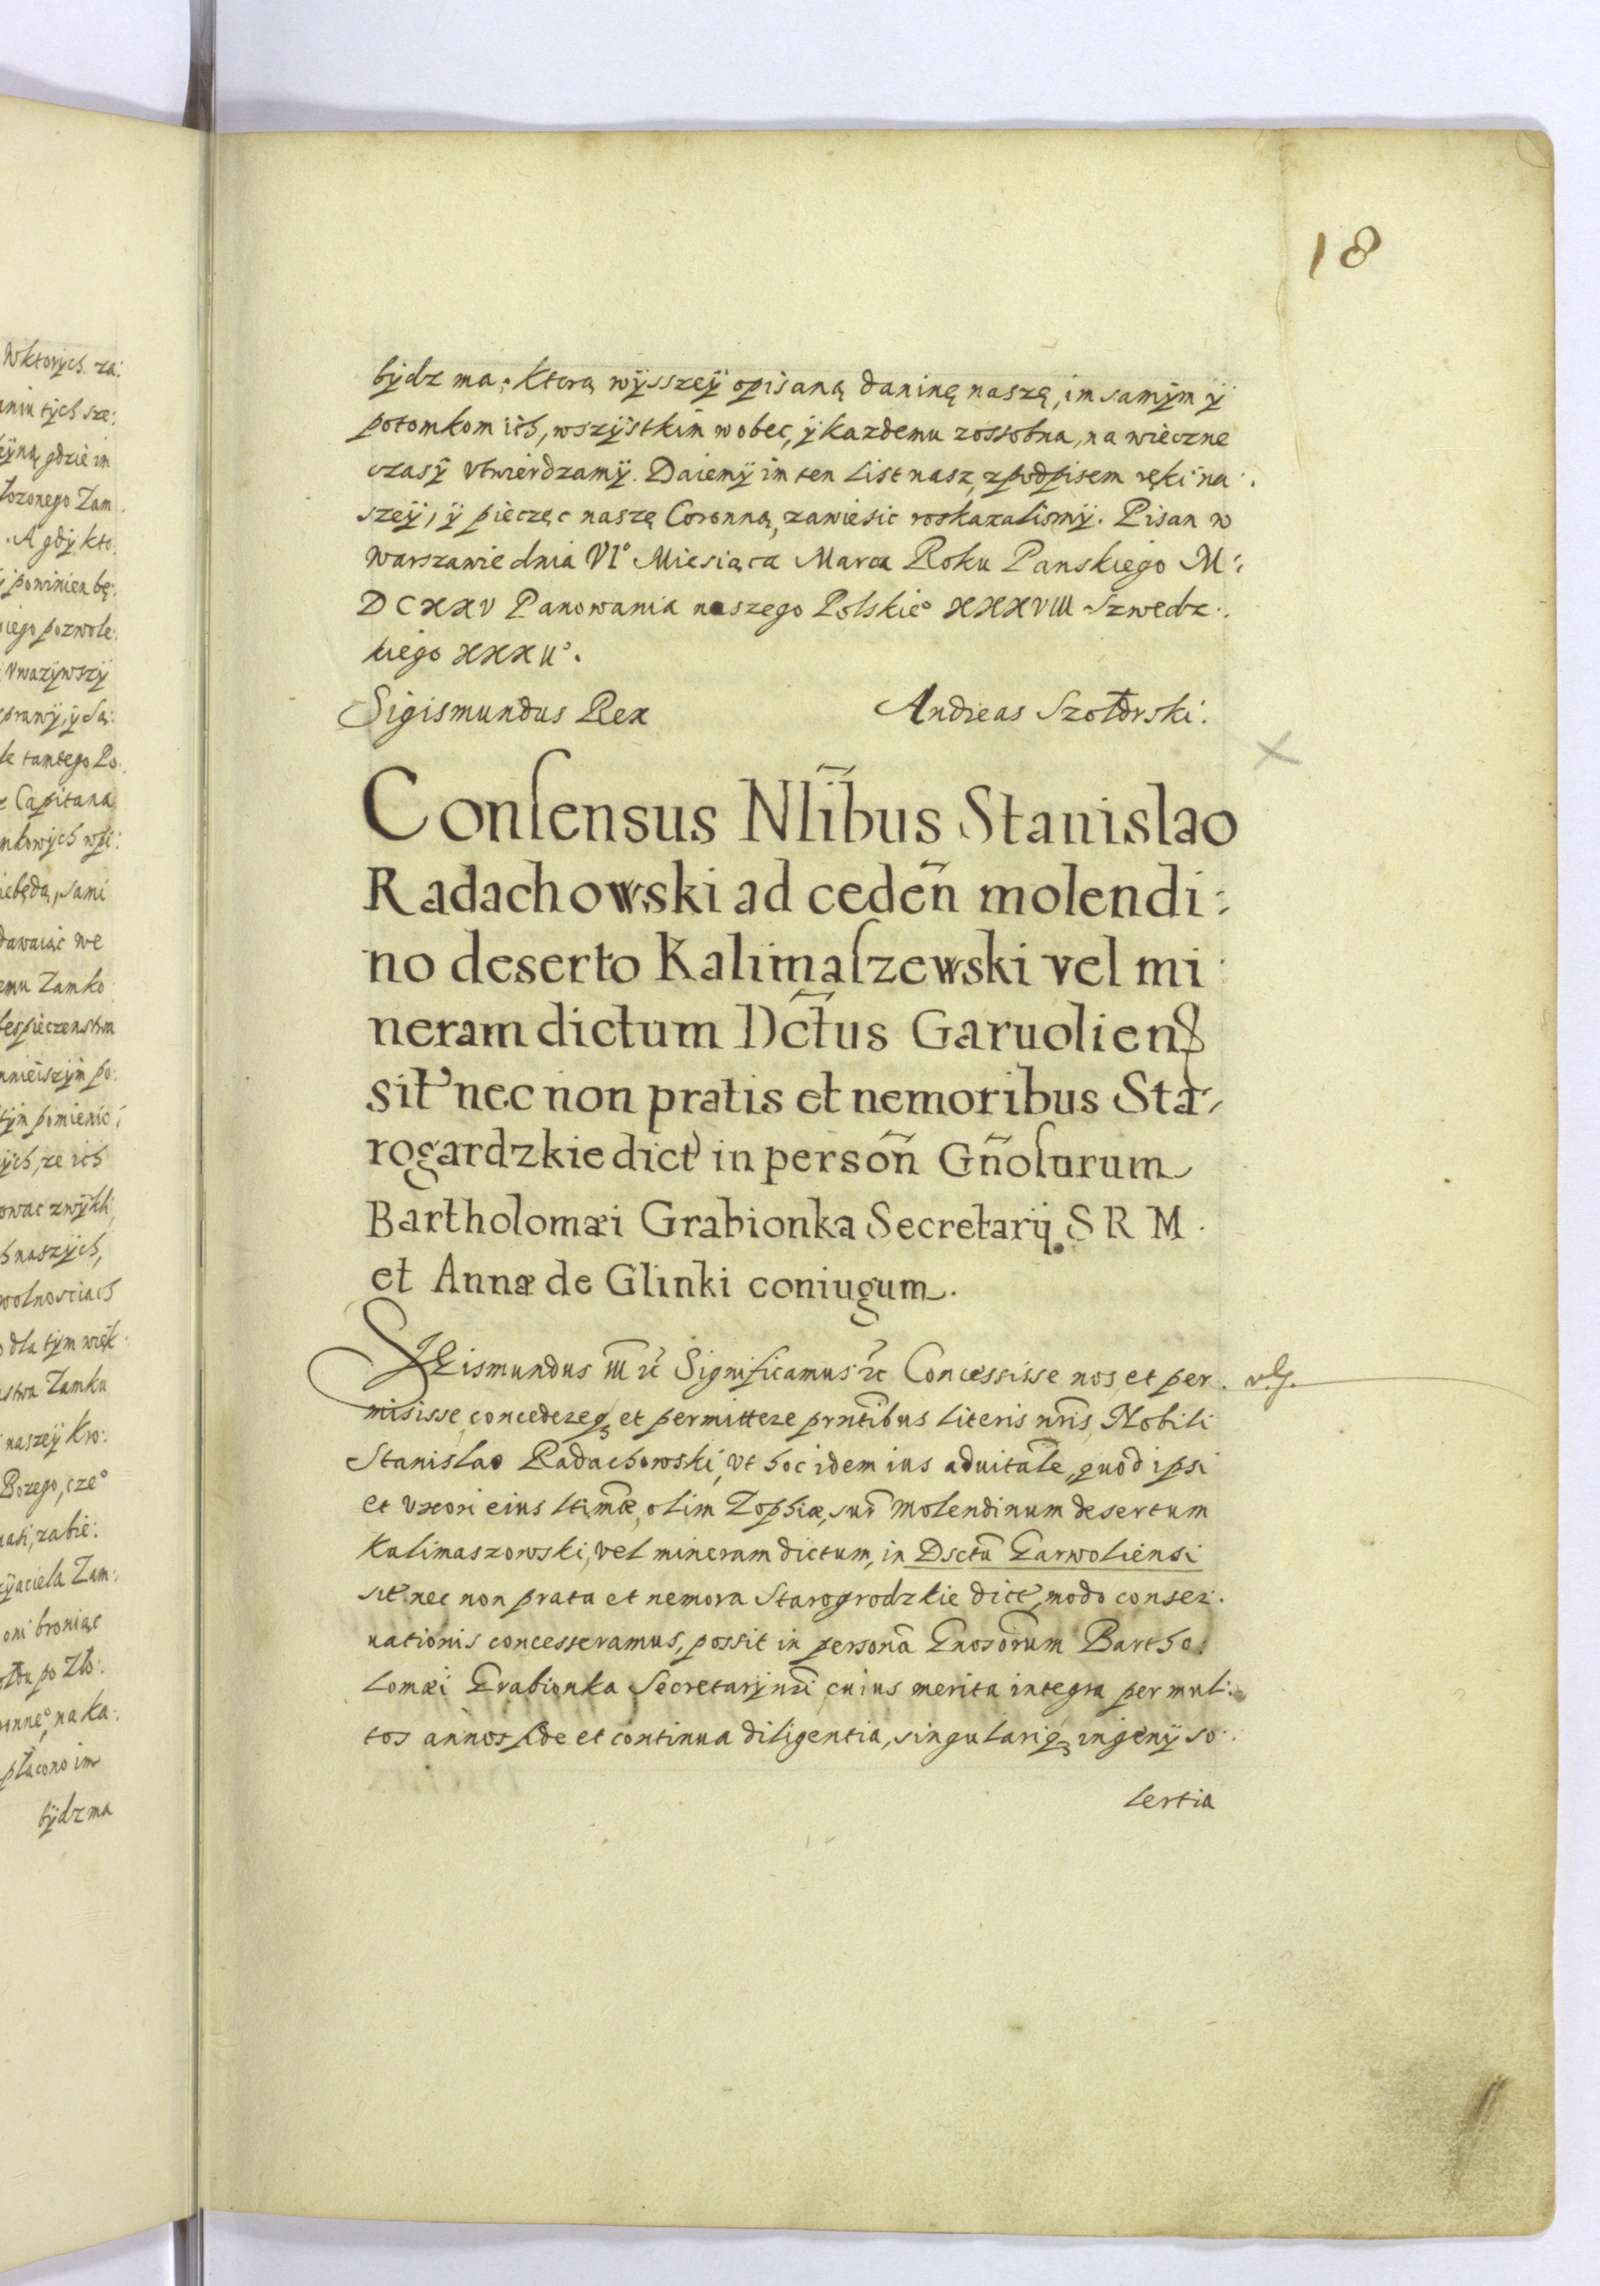 18
bydz ma; ktorą wysszey opisaną daninę naszę, im samym y
potomkom ich, wszystkim wobec, y kazdemu zossobna, na wieczne
czasy vtwierdzamy. Daiemy im ten List nasz, z podpisem ręki na:
szey, y pieczęc naszę Coronną, zawiesic roskazalismy. Pisan w
Warszawie dnia VI° Miesiąca Marca Roku Panskiego M:
DCXXV Panowania naszego Polskie° XXXVIII Szwedz:
kiego XXXII°.
Sigismundus Rex Andreas Szołdrski.
Conſensus Nl̃ibus Stanislao
Radachowski ad ceden̄ molendi:
no deserto Kalimaſzewski vel mi:
neram dictum Dc̄tus Garuolienſ
sit nec non pratis et nemoribus Sta:
rogardzkie dict in person̄ Gn̄oſurum
Bartholomæi Grabionka Secretarij S R M.
et Annæ de Glinki coniugum.
SIGismundus III &c Significamus &c Concessisse nos et per:
misisse, concedereq; et permittere prñtibus literis nr̃is, Nobili
Stanislao Radachowski, vt hoc idem ius aduitale, quod ipsi
et vxori eius ltimæ, olim Zophiæ, sup̃ Molendinum desertum
Kalimaszowski, vel mineram dictum, in Dsctũ Garwoliensi
sit nec non prata et nemora Starogrodzkie dict, modo conser:
uationis concesseramus, possit in personã Gnosorũm Bartho:
lomæi Grabionka Secretarij nr̃i cuius merita integra per mul:
tos annos fide et continua diligentia, singulariq; ingenij so:
lertia
Wktorych za:
aniu tych sze:
gdzie im
łozonego Zam:
A gdy kto
powinien bę:
iego pozwole:
Vwazywszy
prawy, y Są:
le tamtego Po:
Capitana
nkowych wsi:
będą, sami
dawaiąc we
emu Zamko:
bespieczenstwa
mnieiszym po:
tym pomienio:
ych, ze ich
owac zwykli,
h naszych,
wolnosciach
dla tym więk:
stwa Zamku
naszey Kro:
Bozego, cze°
zabie:
yaciela Zam:
oni broniąc
po Zło:
onne°, na ka:
płacono im
bydz ma